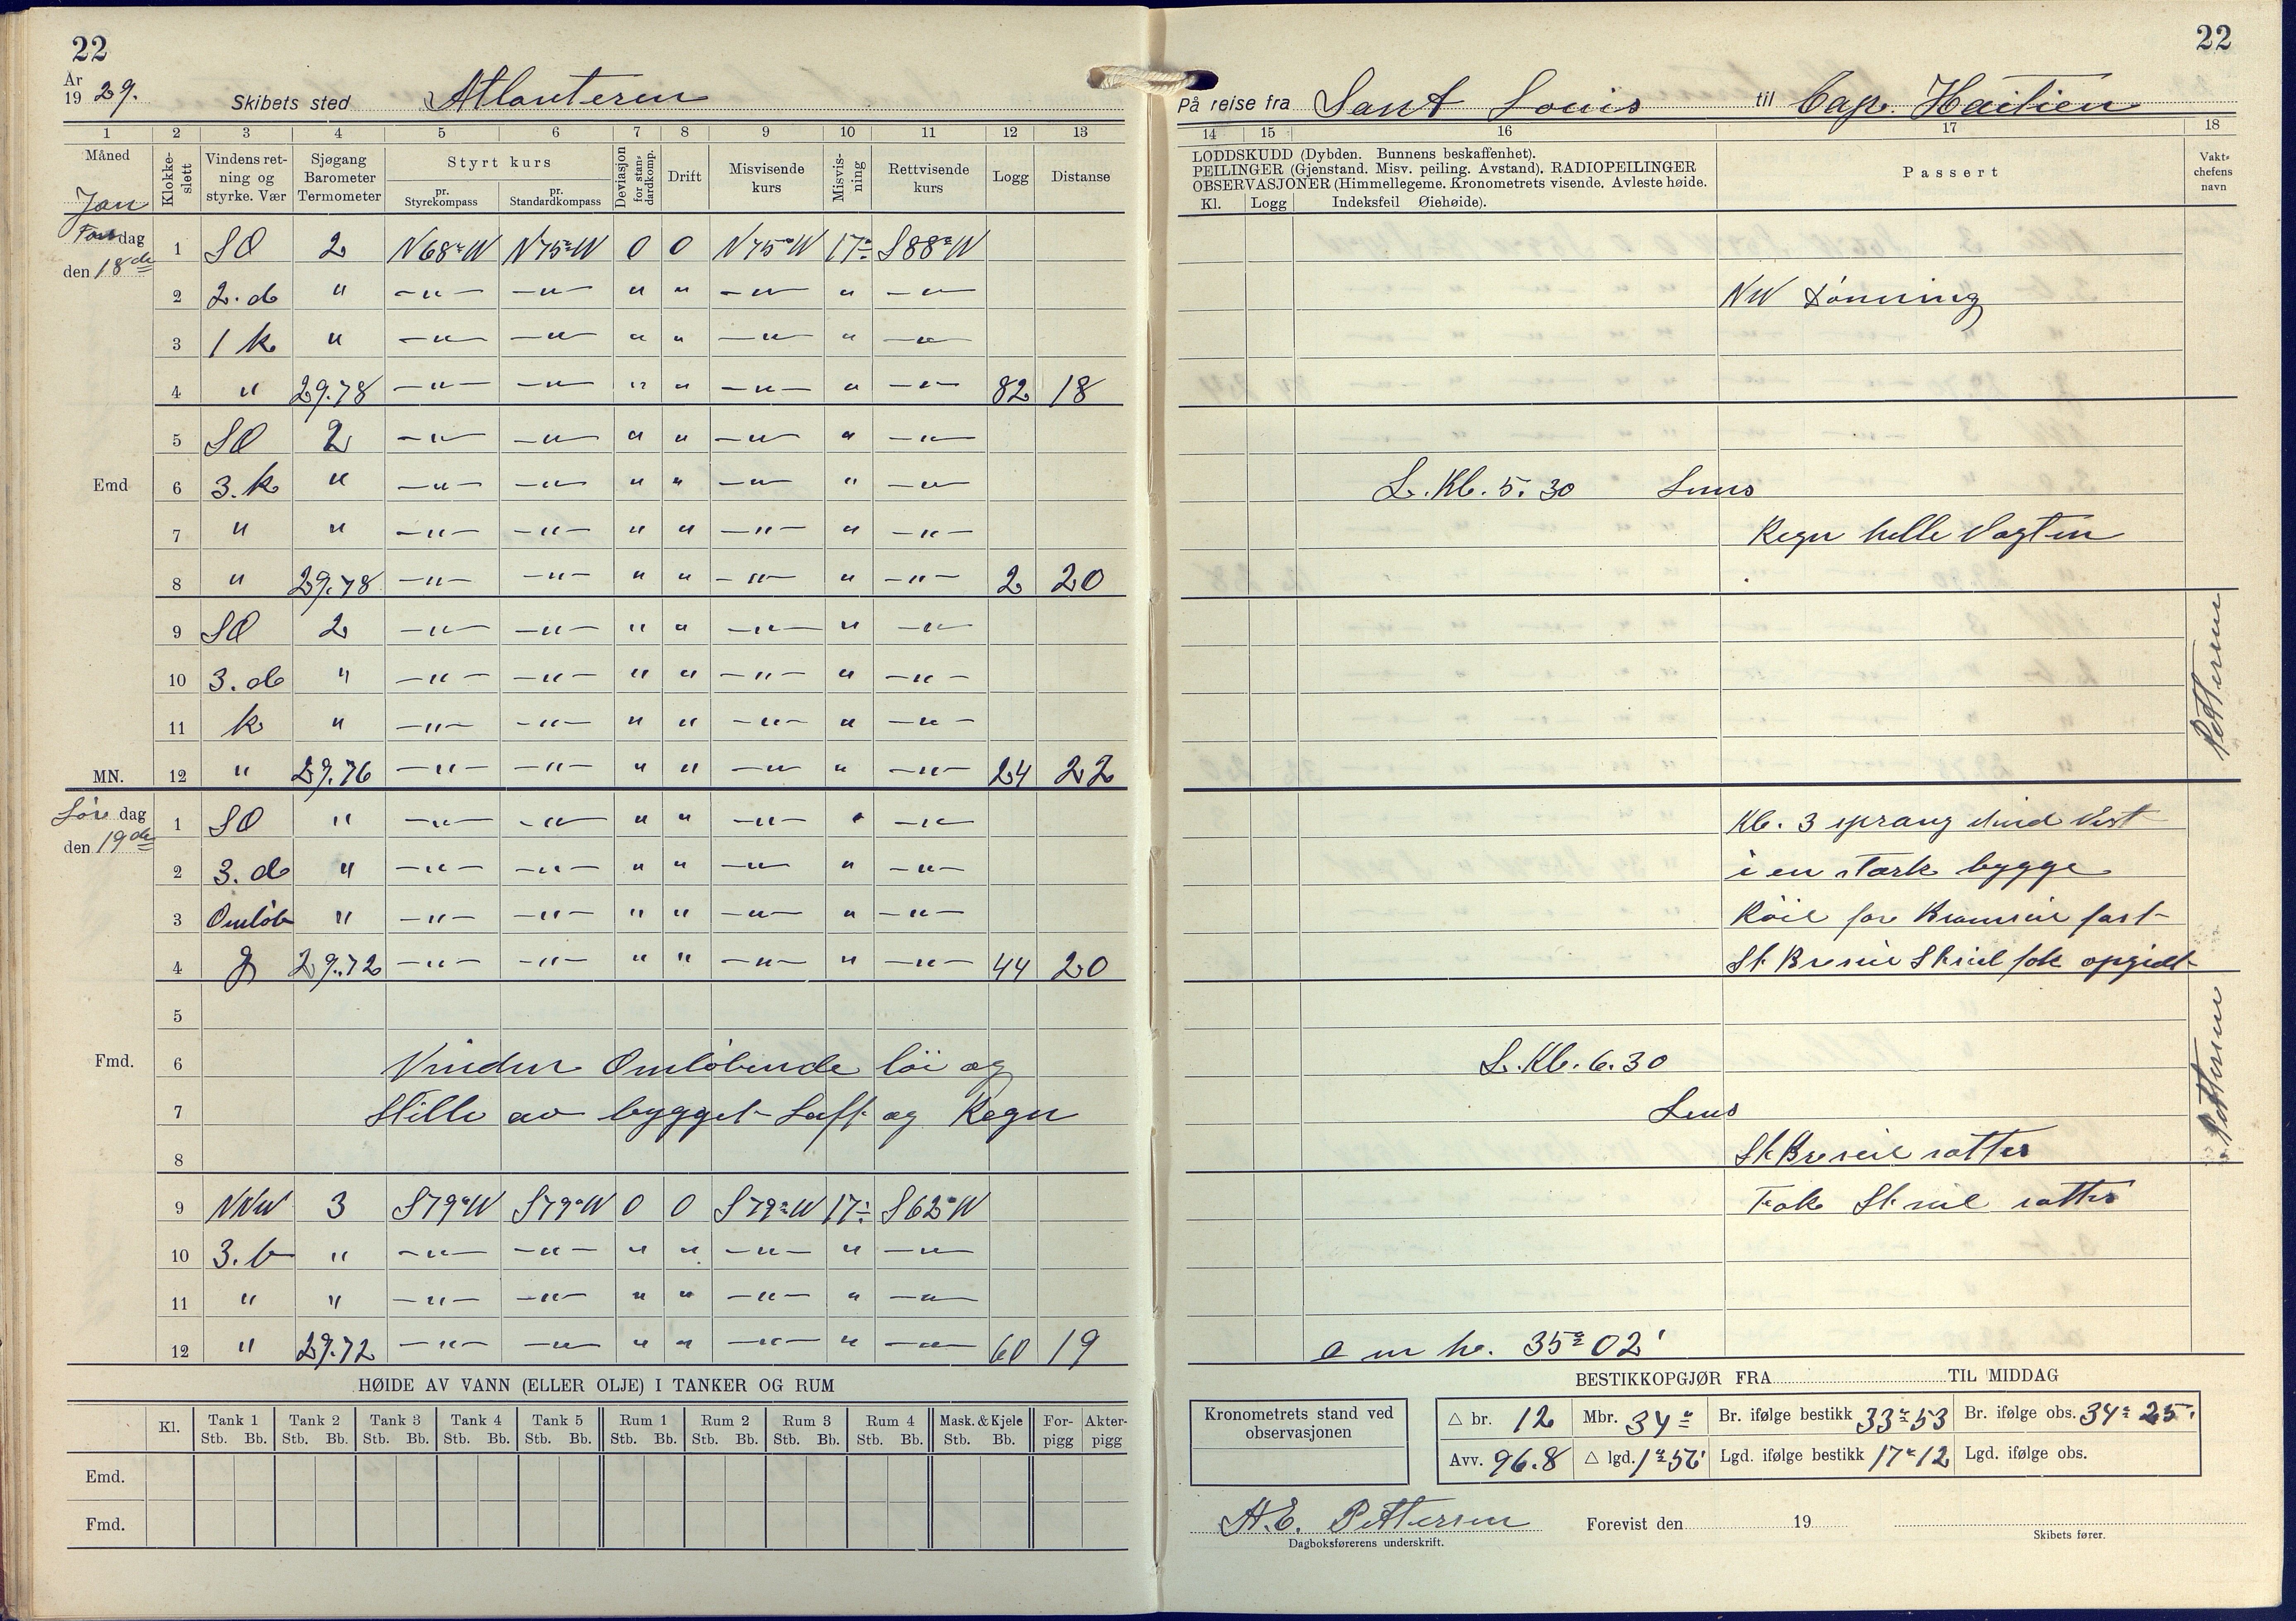 22
År
19 29.
Skibets sted Atlanteren
1 2 3 4 5 6 7 8 9 10 11 12 13
Måned Klokkeslett Vindens retning og styrke. Vær Sjøgang Barometer Termometer Styrt kurs Deviasjon for standardkomp. Drift Misvisende kurs Misvisning Rettvisende kurs Logg Distanse
pr. Styrekompass pr. Standardkompass
Jan
dag
den 18de
1 SO 2 N68°W N75°W 0 0 N75°W 17° S88°W
2 2. d " —"— —"— " " —"— " —"—
3 1 k " —"— —"— " " —"— " —"—
4 " 29.78 —"— —"— " " —"— " —"— 82 18
5 SO 2 —"— —"— " " —"— " —"—
Emd 6 3. k " —"— —"— " " —"— " —"—
7 " " —"— —"— " " —"— " —"—
8 " 29.78 —"— —"— " " —"— " —"— 2 20
9 SO 2 —"— —"— " " —"— " —"—
10 3. d " —"— —"— " " —"— " —"—
11 k " —"— —"— " " —"— " —"—
MN. 12 " 29.76 —"— —"— " " —"— " —"— 24 22
Lør dag
den 19de
1 SO " —"— —"— " " —"— " —"—
2 3. d " —"— —"— " " —"— " —"—
3 Omløb " —"— —"— " " —"— " —"—
4 29.72 —"— —"— " " —"— " —"— 44 20
5
Fmd. 6 Vinden Omløbende løi og
7 Stille av bygget Luft og Regn
8
9 NNW 3 S79°W S79°W 0 0 S79°W 17° S62°W
10 3. b " —"— —"— " " —"— " —"—
11 " " —"— —"— " " —"— " —"—
12 " 29.72 —"— —"— " " —"— " —"— 60 19
HØIDE AV VANN (ELLER OLJE) I TANKER OG RUM
Kl. Tank 1 Tank 2 Tank 3 Tank 4 Tank 5 Rum 1 Rum 2 Rum 3 Rum 4 Mask. & Kjele For- Akter-
Stb. Bb. Stb. Bb. Stb. Bb. Stb. Bb. Stb. Bb. Stb. Bb. Stb. Bb. Stb. Bb. Stb. Bb. Stb. Bb. pigg pigg
Emd.
Fmd.
22
På reise fra Sant Louis til Cap. Haitien
14 15 16 17 18
LODDSKUDD (Dybden. Bunnens beskaffenhet).
PEILINGER (Gjenstand. Misv. peiling. Avstand). RADIOPEILINGER
OBSERVASJONER (Himmellegeme. Kronometrets visende. Avleste høide.
Kl. Logg Indeksfeil Øiehøide).
Passert
Vaktchefens navn
NW Dønning
L. Kl. 5. 30 Lens
Regn helle Vagten
Pettersen
Kl. 3 sprang Vind Vest
i en stærk bygge
Røil for Bramseil fast
St Breseil Stseil fok opgidt
L. Kl. 6. 30
Lens
Pettersen
St Breseil satter
Fok St seil satter
35° 02'
BESTIKKOPGJØR FRA TIL MIDDAG
Kronometrets stand ved observasjonen
△ br. 12 Mbr. 34° Br. ifølge bestikk 33° 53 Br. ifølge obs. 34° 25'
Avv. 96.8 △ lgd. 1° 56' Lgd. ifølge bestikk 17° 12 Lgd. ifølge obs.
H. E. Pettersen
Dagboksførerens underskrift.
Forevist den 19
Skibets fører.